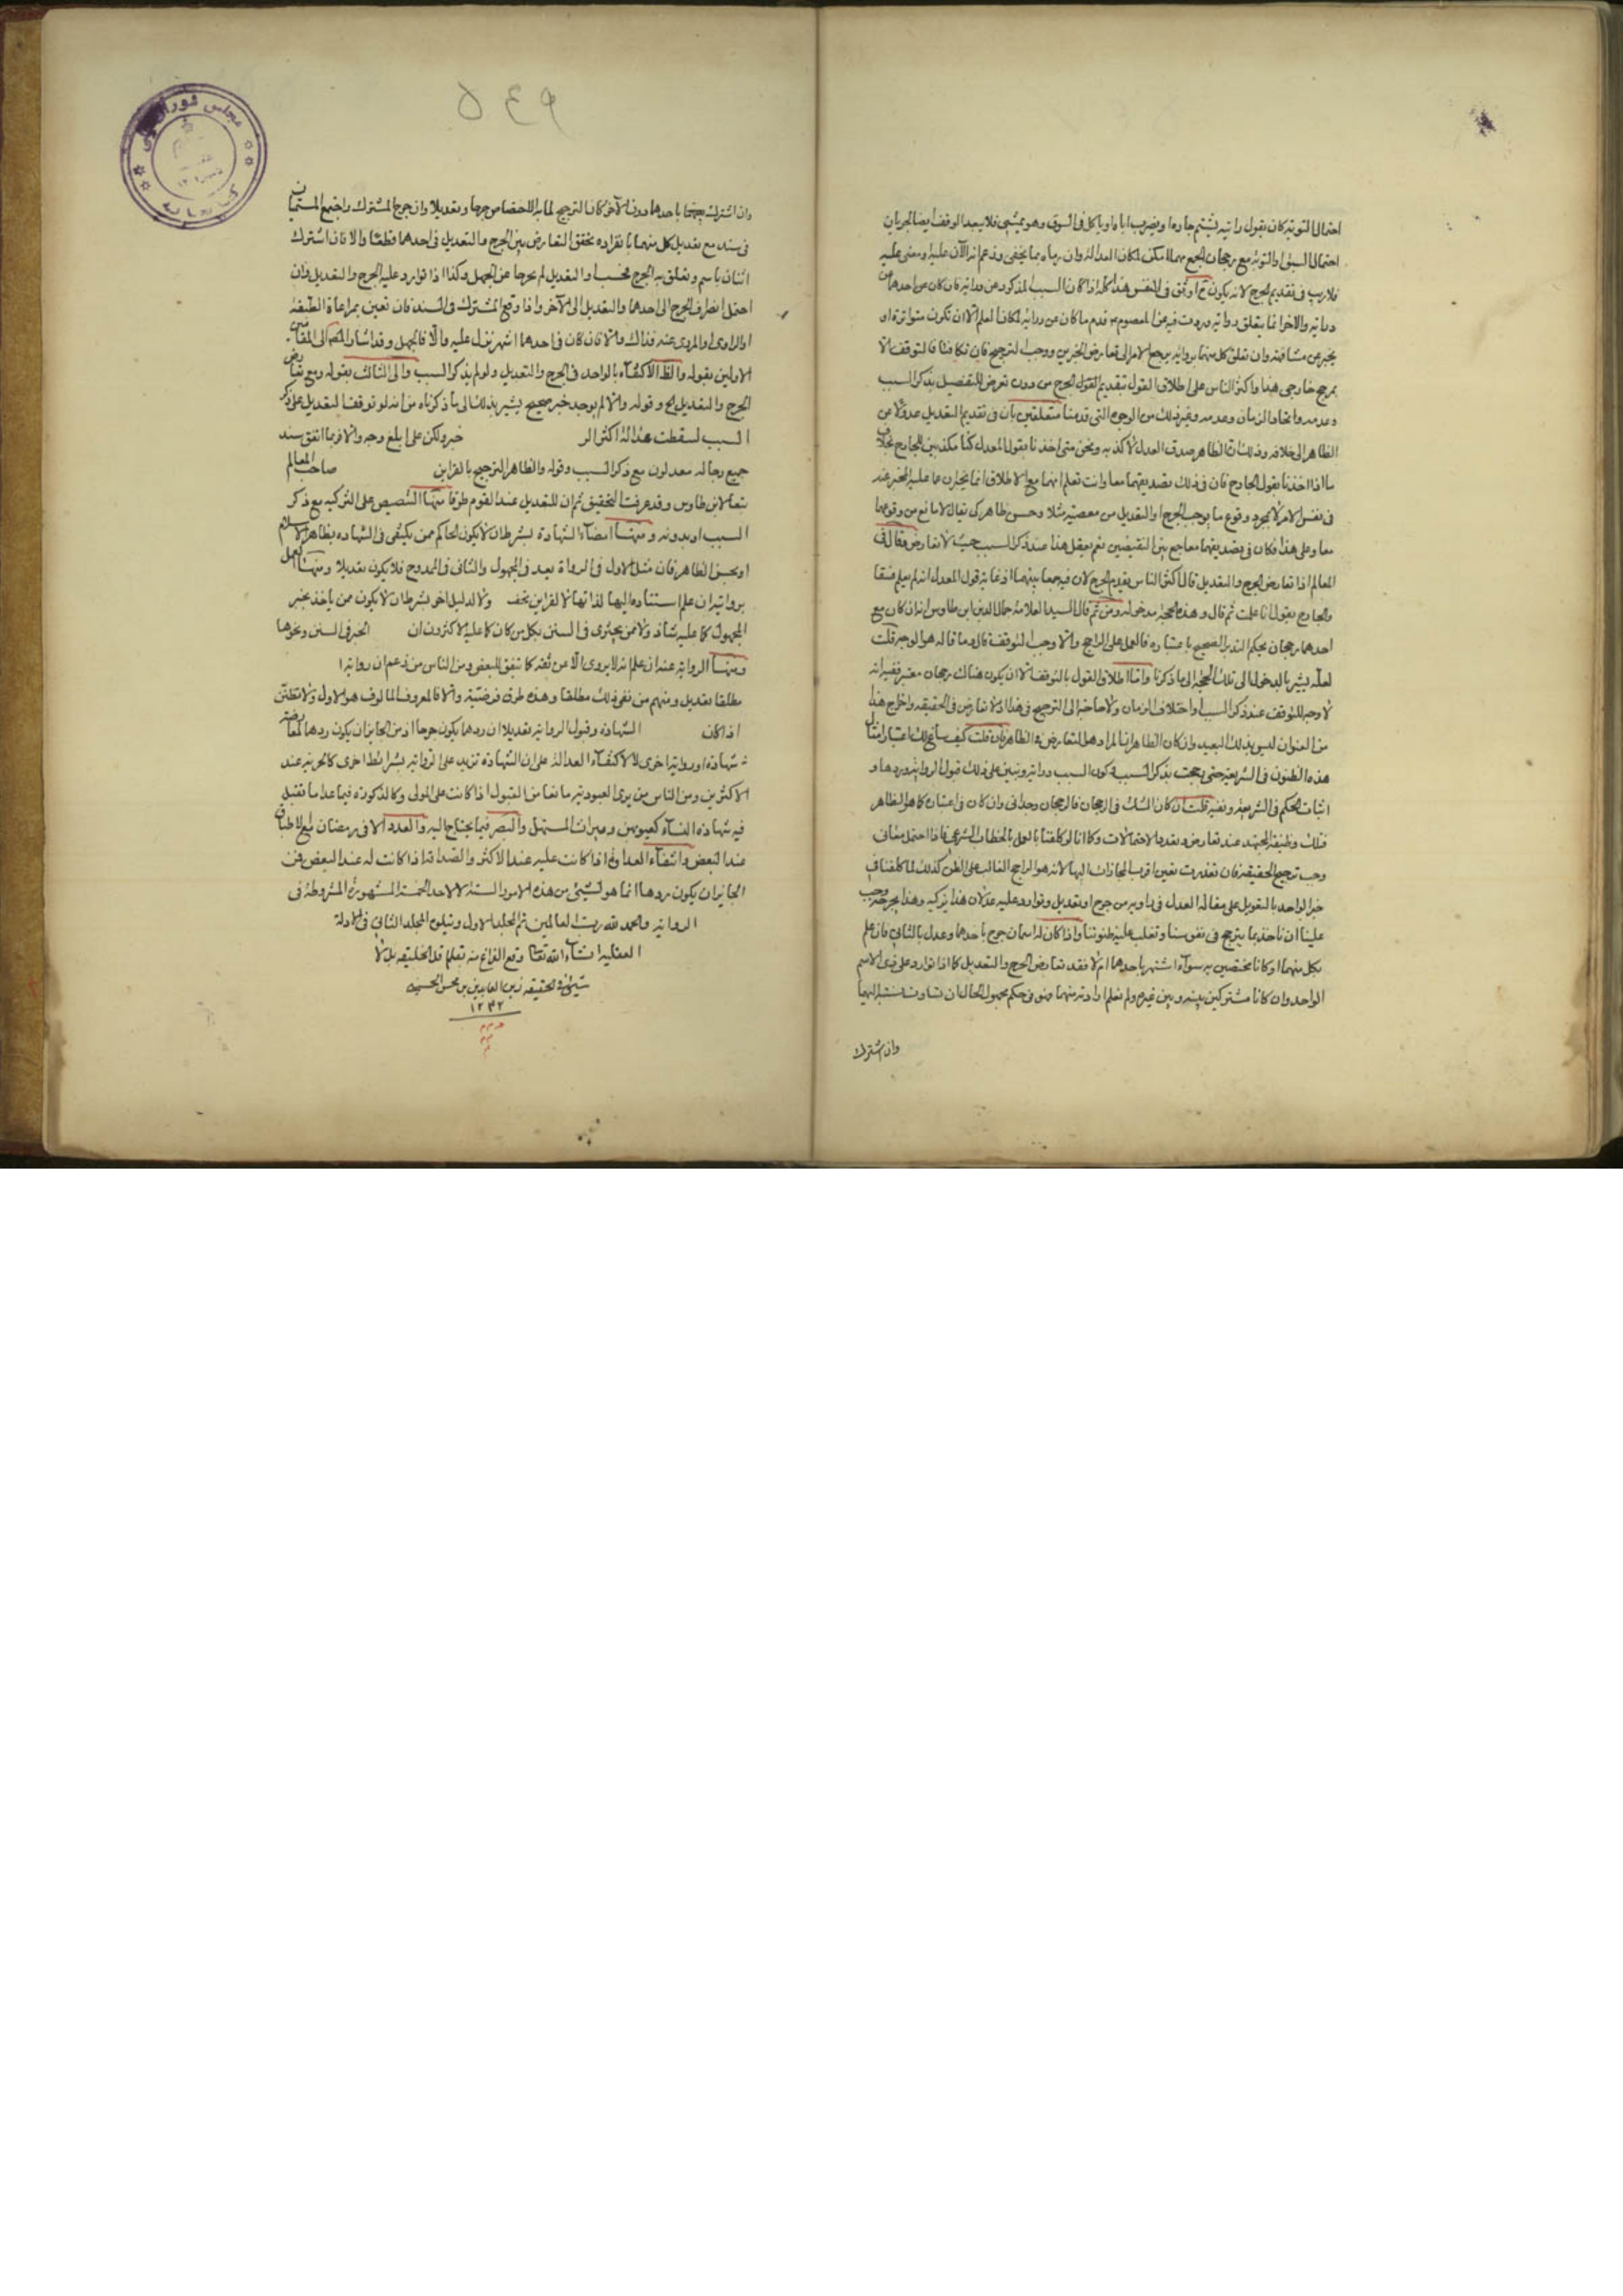 احتمال التوبة كان يقول رايته يشتم جاره او يضرب اباه او ياكل فى السوق وهو يمشى فلا يبعد الوقف ايضا لجريان
احتمال السبق او التوبة مع رجحان الجمع مهما امكن لمكان العدالة وان رماه بما يخفى وزعم انه الآن عليه ومضى عليه
فلا ريب فى تقديم الجرح لانه يكون ح اوثق فى النفس هذا كله اذا كان السبب المذكور عن دراية فان كان عن احدهما عن
دراية والاخر انما يتعلق برواية وردت فيه عن المعصوم قدم ما كان عن دراية لمكان العلم الا ان تكون متواترة او
يخبر عن مشافهة وان تعلق كل منهما برواية يرجع الامر الى تعارض الخبرين ووجب الترجيح فان تكافئا فالتوقف الا
بمرجح خارجى هذا واكثر الناس على اطلاق القول بتقديم القول الجرح من دون تعرض للتفصيل بذكر السبب
وعدمه واتحاد الزمان وعدمه وغير ذلك من الوجوه التى قدمنا متعلقين بان فى تقديم التعديل عدولا عن
الظاهر الى خلافه وذلك ان الظاهر صدق العدل لا كذبه ونحن متى اخذنا بقول المعدل كنا مكذبين للجارح بخلاف
ما اذا اخذنا بقول الجارح فان فى ذلك تصديقهما معا وانت تعلم انهما مع الاطلاق انما يخبران عما عليه المخبر عنه
فى نفس الامر لا بمجرد وقوع ما يوجب الجرح او التعديل من معصية مثلا وحسن ظاهر كى يقال لا مانع من وقوعهما
معا وعلى هذا فكان فى تصديقهما معا جمع بين النقيضين نعم يعقل هذا عند ذكر السبب حيث لا تعارض وقال فى
المعالم اذا تعارض الجرح والتعديل قال اكثر الناس يقدم الجرح لان فيه جمعا بينهما اذ غاية قول المعدل انه لم يعلم فسقا
والجارح يقول انا علمت ثم قال وهذه الحجة مدخولة ومن ثم قال السيد العلامة جمال الدين ابن طاوس انه ان كان مع
احدهما رجحان يحكم التدبر الصحيح باعتباره فالعمل على الراجح والا وجب التوقف قال وما قاله هو الوجه قلت
لعله يشير بالدخول الى تلك الحجة الى ما ذكرنا واما اطلاق القول بالتوقف الا ان يكون هناك رجحان معتبر ففيه انه
لا وجه للتوقف عند ذكر السبب او اختلاف الزمان ولا حاجة الى الترجيح فى هذا اذ لا تعارض فى الحقيقة واخراج هذا
من العنوان ليس بذلك البعيد وان كان الظاهر ان المراد هو التعارض فى الظاهر فان قلت كيف ساغ لك اعتبار امثال
هذه الظنون فى الشريعة حتى رجحت بذكر السبب وكون السبب دراية وتبين على ذلك قبول الرواية وردها و
اثبات الحكم فى الشريعة ونفيه قلت ان كان الشك فى الرجحان فالرجحان وجدانى وان كان فى اعتباره كما هو الظاهر
فتلك وظيفة المجتهد عند تعارض وتعدد الاحتمالات وكما انا لو كلفنا بالعمل بالخطاب الشرعى فاذا احتمل معانى
وجب ترجيح الحقيقة فان تعذرت تعين اقرب المجازات اليها لانه هو الراجح الغالب على الظن كذلك لما كلفنا فى
خبر الواحد بالتعويل على مقالة العدل فى راويه من جرح او تعديل وتوارد عليه عدلان هذا يزكيه وهذا يجرحه وجب
علينا ان ناخذ بما يترجح فى نفوسنا وتغلب عليه ظنوننا واذا كان له اسمان جرح باحدهما وعدل بالثانى فان علم
بكل منهما او كانا مختصين به سواء اشتهر باحدهما ام لا فقد تعارض الجرح والتعديل كما اذا توارد على ذى الاسم
الواحد وان كانا مشتركين بينه وبين غيره ولم نعلم ارادته منهما فهو فى حكم مجهول الحال ان تساوت نسبته اليهما
وان اشترك
٥٤٩
وان اشترك باحدهما دون الآخر كان الترجيح لما به الاختصاص جرحا وتعديلا وان جرح المشترك واجتمع المسميان
فى سند مع تعديل كل منهما بانفراده تحقق التعارض بين الجرح والتعديل فى احدهما قطعا والا فان اشترك
اثنان باسم وتعلق به الجرح فحسب او التعديل لم يخرجا عن الجهل وكذا اذا توارد عليه الجرح والتعديل وان
احتمل انصراف الجرح الى احدهما والتعديل الى الآخر واذا وقع المشترك فى السند فان تعين بمراعاة الطبقة
او الراوى او المروى عنه فذاك والا فان كان فى احدهما اشهر نزل عليه والا فالجهل وقد اشار المص الى المقامين
الاولين بقوله والظ الاكتفاء بالواحد فى الجرح والتعديل ولو لم يذكر السبب والى الثالث بقوله ومع تعارض
الجرح والتعديل الخ وقوله والا لم يوجد خبر صحيح يشير بذلك الى ما ذكرناه من انه لو توقف التعديل على ذكر
السبب لسقطت عدالة اكثر الر خبر ولكن على ابلغ وجه والا فربما اتفق سند
جميع رجاله معدلون مع ذكر السبب وقوله والظاهر الترجيح بالقراين صاحب المعالم
تبعا لابن طاوس وقد عرفت التحقيق ثم ان للتعديل عند القوم طرقا منها التنصيص على التزكيه مع ذكر
السبب او بدونه ومنها امضاء الشهادة بشرط ان لا يكون الحاكم ممن يكتفى فى الشهاده بظاهر الاسلام
او بحسن الظاهر فان مثل الاول فى الرواة يعد فى المجهول والثانى فى الممدوح فلا يكون تعديلا ومنها العمل
بروايته ان علم استناده اليها لذاتها لا لقراين تحف ولا لدليل اخر بشرط ان لا يكون ممن ياخذ بخبر
المجهول كما عليه شاذ ولا ممن يجتزى فى السنن بكل من كان كما عليه الاكثرون ان الخبر فى السنن ونحوها
ومنها الرواية عنه ان علم انه لا يروى الا عن ثقة كما تفق للبعض ومن الناس من زعم ان روايته
مطلقا تعديل ومنهم من نفى ذلك مطلقا وهذه طرق فرضية والا فالمعروف المالوف هو الاول ولا تظنن
اذا كان الشهادة وقبول الرواية تعديلا ان ردهما يكون جرحا اذ من الجايز ان يكون ردهما لمعارضة
شهادة او رواية اخرى لا لانتفاء العدالة على ان الشهادة تزيد على الرواية بشرائط اخرى كالحرية عند
الاكثرين ومن الناس من يرى العبودية مانعا من القبول اذا كانت على المولى وكالذكورة فيما عدا ما تقبل
فيه شهادة النساء كعيوبهن وميراث المستهل والبصر فيما يحتاج اليه والعدد الا فى رمضان
عند البعض وانتفاء العداوة اذا كانت عليه عند الاكثر والصداقة اذا كانت له عند البعض فمن
الجايز ان يكون ردها انما هو لشيئ من هذه الامور الستة لا لاحد الخمسة المشهورة المشروطة فى
الرواية والحمد لله رب العالمين تم المجلد الاول ويتلوه المجلد الثانى فى الادلة
العقلية ان شاء الله تعالى وقع الفراغ منه بقلم اقل الخليقة بل لا
شيئ فى الحقيقة زين العابدين بن محسن الحسينى
١٢٣٢